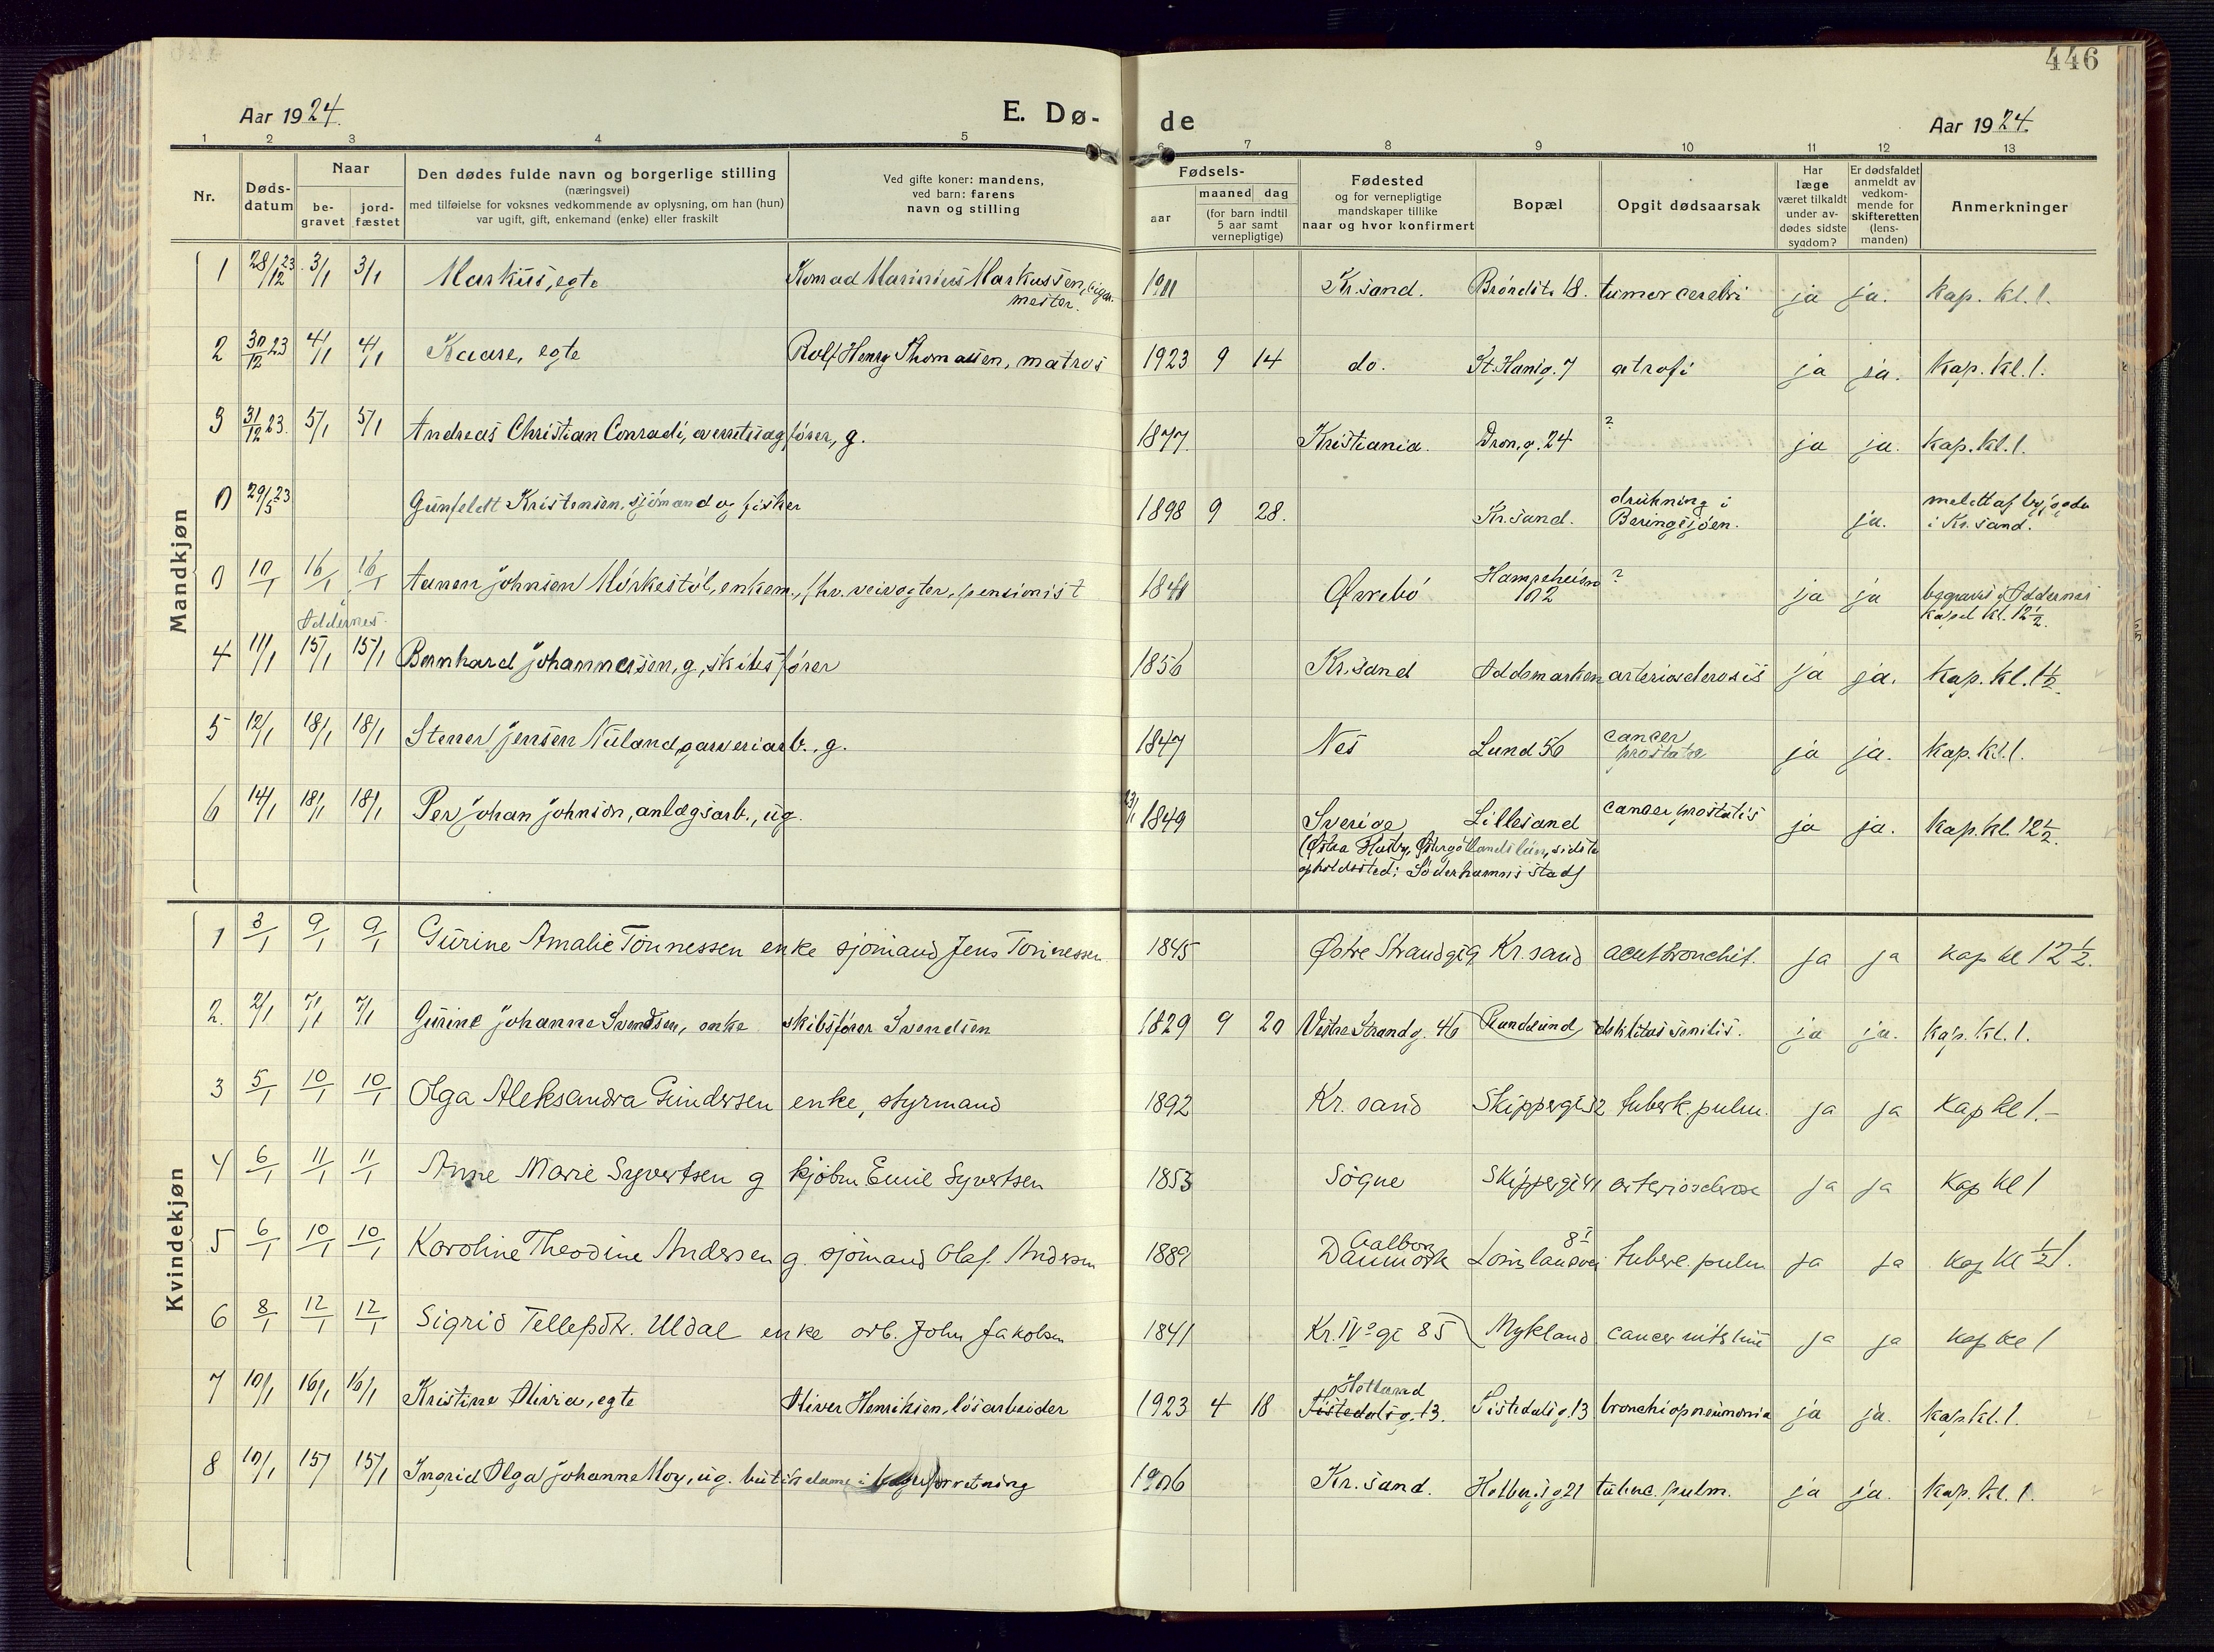 446
Aar 1924.
E. Dø-
de
Aar 1924.
1 2 3 4 5 6 7 8 9 10 11 12 13
Nr.
Døds-
datum
Naar
be-
gravet
jord-
fæstet
Den dødes fulde navn og borgerlige stilling
(næringsvei)
med tilføielse for voksnes vedkommende av oplysning, om han (hun)
var ugift, gift, enkemand (enke) eller fraskilt
Ved gifte koner: mandens,
ved barn: farens
navn og stilling
Fødsels-
aar
maaned dag
(for barn indtil
5 aar samt
vernepligtige)
Fødested
og for vernepligtige
mandskaper tillike
naar og hvor konfirmert
Bopæl
Opgit dødsaarsak
Har
læge
været tilkaldt
under av-
dødes sidste
sygdom?
Er dødsfaldet
anmeldt av
vedkom-
mende for
skifteretten
(lens-
manden)
Anmerkninger
Mandkjøn
1 28/12 23. 3/1 3/1 Markus, egte Konrad Marinius Markussen, 1911 Kr.sand. Bröndst. 18. tumor cerebri ja ja. Kap. kl. 1.
mester.
2 30/12 23 4/1 4/1 Kaare, egte Rolf Henry Thomassen, matros 1923 9 14 do. St. Hansg. 7 atrofi ja ja. Kap. kl. 1.
3 31/12 23. 5/1 5/1 Andreas Christian Conradi, overretssagförer, g. 1877. Kristiania. Dron. g. 24 ? ja ja. Kap. kl. 1.
0 29/5 23 Gunfeldt Kristensen, sjömand og fisker 1898 9 28. Kr.sand. drukning i
Beringsjöen. ja. meldt af byfogden
i Kr.sand.
0 10/1 16/1 16/1 Aanen Johnsen Mörkestöl, enkem., fhv. veivogter, pensionist 1841 Øvrebö ? ja ja begravet i Oddernes
Oddernes 102 Kapel kl. 12 1/2.
4 11/1 15/1 15/1 Bernhard Johannessen, g, skibsförer 1856 Kr.sand Oddemarken arteriosclerosis ja ja. Kap. kl. 1 1/2.
5 12/1 18/1 18/1 Stener Jensen Nuland, garveriarb., g. 1847 Nes Lund 56 cancer
prostatæ ja ja. Kap. kl. 1.
6 14/1 18/1 18/1 Per Johan Johnson, anlægsarb., ug. 1849 Sverige Lillesand cancer prostatis ja ja. Kap. kl. 12 1/2.
(Østra Husby, Østergötlands län, sidste
opholdssted: Söderhamns stad)
Kvindekjøn
1 3/1 9/1 9/1 Gurine Amalie Tönnessen enke sjömand Jens Tönnessen 1845 Østre Strandgt 9 Kr.sand acut bronchit. ja ja kap kl 12 1/2.
2. 2/1 7/1 7/1 Gurine Johanne Svendsen, enke skibsförer Svendsen 1829 9 20 Vestre Strandg. 46 Randesund debilitas senilis. ja ja. Kap. kl. 1.
3 5/1 10/1 10/1 Olga Aleksandra Gundersen enke, styrmand 1892 Kr. sand Skippergt 32 tuberk. pulm. ja ja Kap kl 1.-
4 6/1 11/1 11/1 Anne Marie Syvertsen g kjöbm Emil Syvertsen 1853 Sögne Skippergt 41 arteriosclerose ja ja Kap kl 1
5 6/1 10/1 10/1 Karoline Theodine Andersen g. sjömand Olaf Andersen 1889 Aalborg
Danmark tuberc. pulm ja ja Kap kl 1/2 1.
6 8/1 12/1 12/1 Sigrid Tellefsdtr. Uldal enke arb. John Jakobsen 1841 Kr. IVs gt 85 Mykland cancer ja ja kap kl 1
7 10/1 16/1 16/1 Kristine Olivia, egte Oliver Henriksen, lösarbeider 1923 4 18 Tistedalsg. 13. Tistedalsg. 13 bronchiopneumonia ja ja. Kap. kl. 1.
8 10/1 15/1 15/1 Ingrid Olga Johanne Moy, ug. butikdame i forretning 1906 Kr.sand. Holbergsg 21 tuberc. pulm. ja ja. Kap. kl. 1.